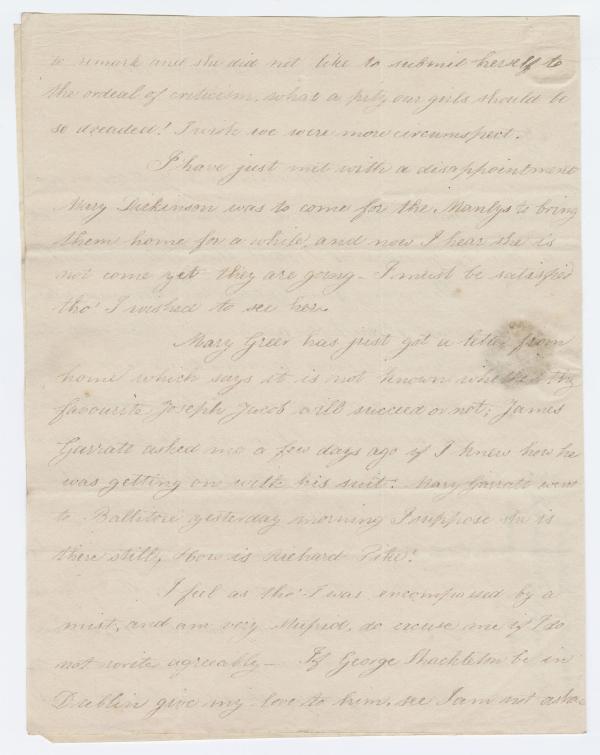 to remark and she did not like to submit herself to
the ordeal of criticism, what a pity our girls should be
so dreaded! I wish we were more circumspect.
I have just met with a disappointment
Mary Dickinson was to come for the Manlys to bring
them home for a while, and now I hear she is
not come yet they are going - I must be satisfied
tho' I wished to see her.
Mary Greer has just got a letter from
home which says it is not known whether thy
favourite Joseph Jacob will succeed or not; James
Garratt asked me a few days ago if I knew how he
was getting on with his suit. Mary Garratt went
to Ballitore yesterday morning I suppose she is
there still, How is Richard Pike?
I feel as tho' I was encompassed by a
mist, and am very stupid, do excuse me if I do
not write agreeably - If George Shackleton be in
Dublin give my love to him, see I am not asha